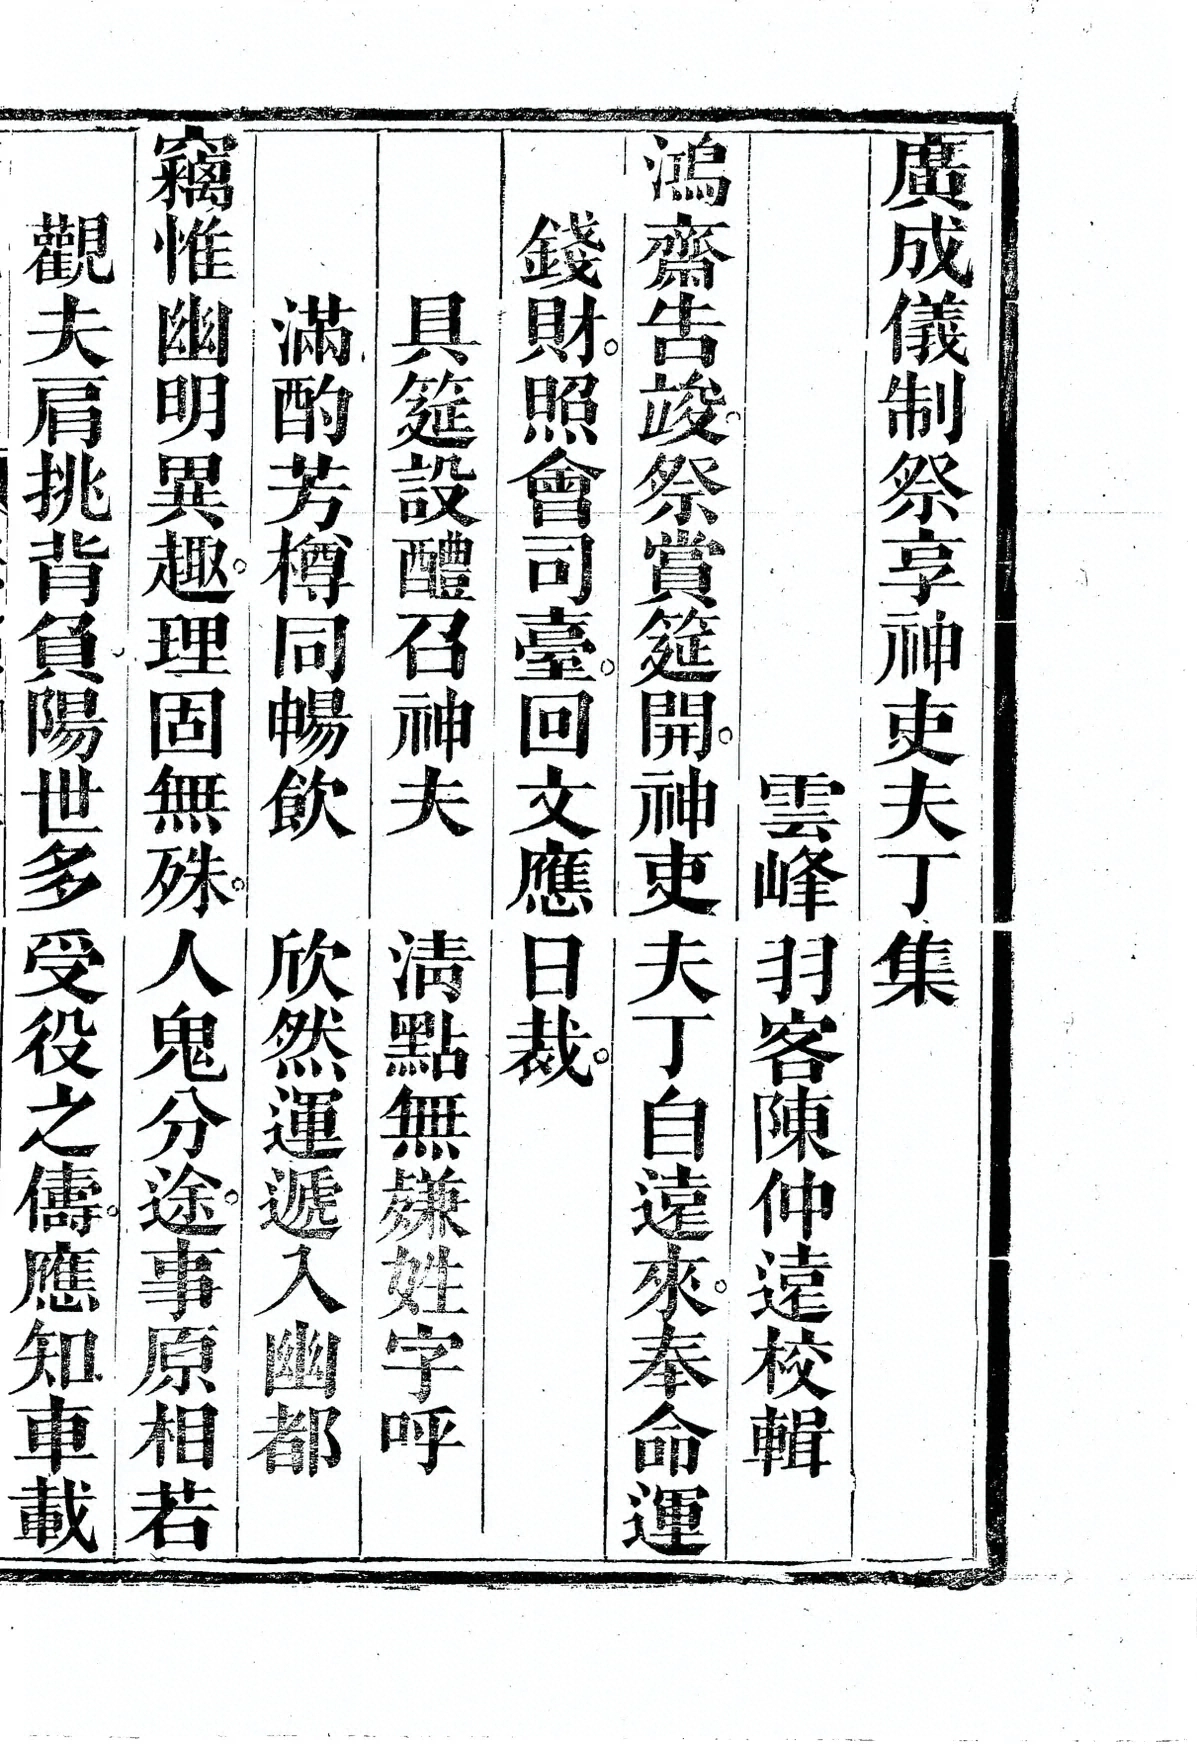 廣成儀制祭享神吏夫丁集
雲峰羽客陳仲遠校輯
鴻齋告竣。祭賞筵開。神吏夫丁自遠來。奉命運
錢財。照會司臺。回文應日裁。
具筵設醴召神夫　清點無嫌姓字呼
滿酌芳樽同暢飲　欣然運遞入幽都
竊惟幽明異趣。理固無殊。人鬼分途。事原相若
觀夫肩挑背負。陽世多受役之儔。應知車載